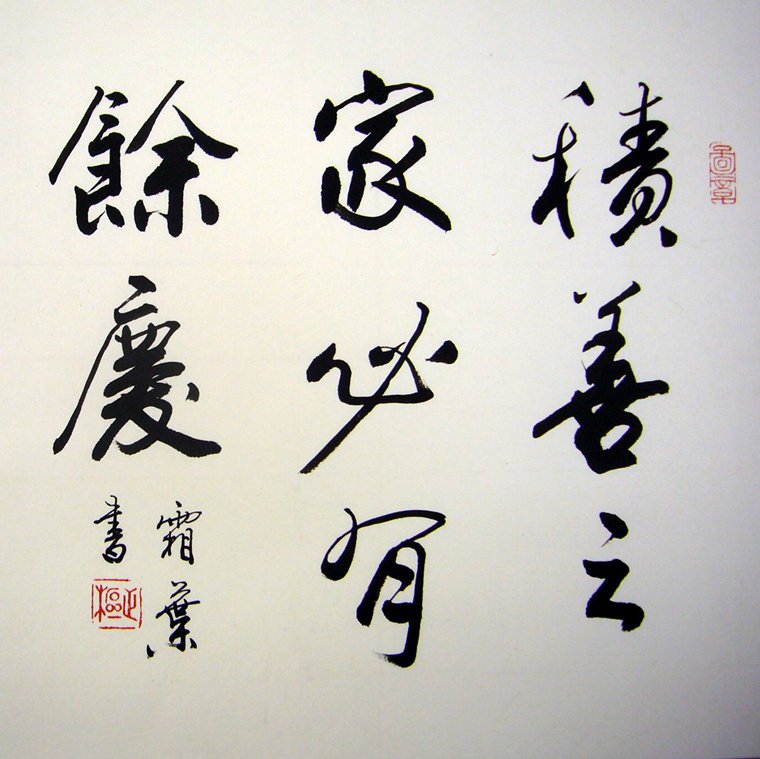 積善之
家必有
餘慶
霜葉
書